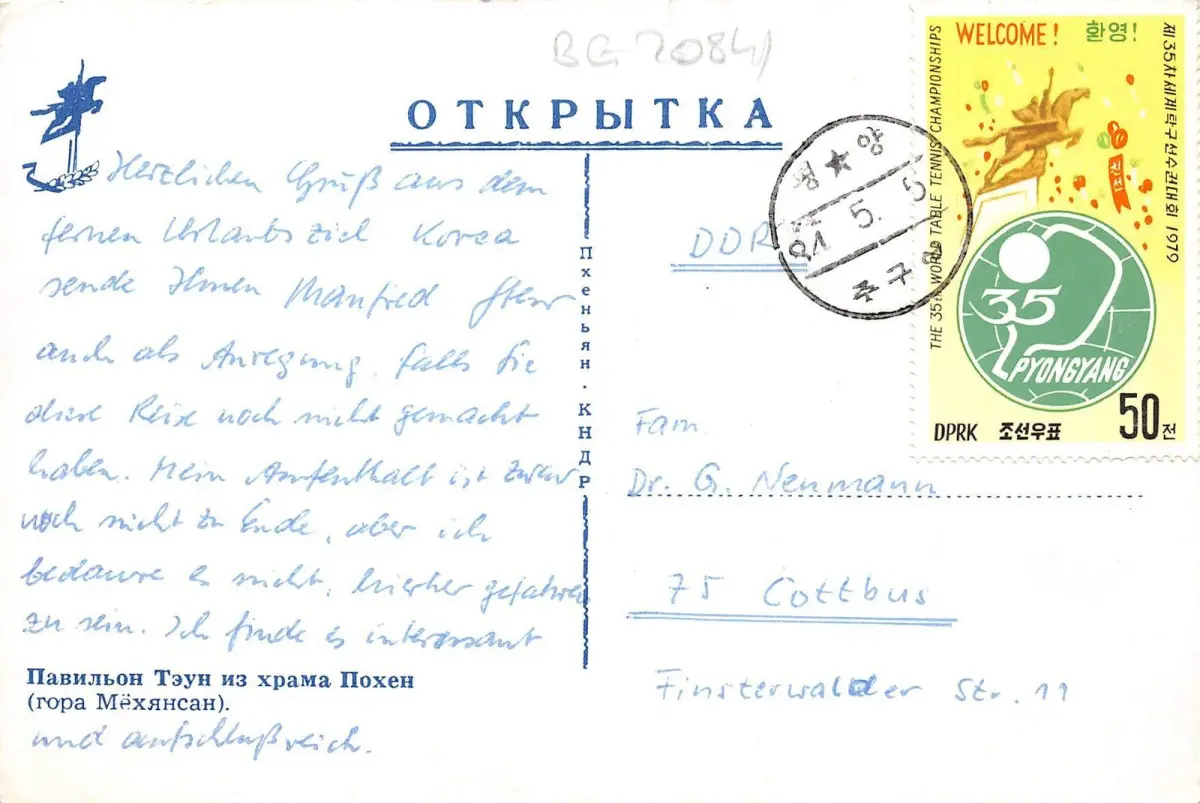 BG 2084
ОТКРЫТКА
Herzlichen Gruß aus dem
fernen Urlaubsziel Korea
sende Ihnen Manfred
auch als Anregung, falls Sie
diese Reise noch nicht gemacht
haben. Mein Aufenthalt ist zwar
noch nicht zu Ende, aber ich
bedaure es nicht, hierher gefahren
zu sein. Ich finde es interessant
Павильон Тэун из храма Похен
(гора Мёхянсан).
und aufschlußreich.
Пхеньян · КНДР
DDR
Fam.
Dr. G. Neumann
75 Cottbus
Finsterwalder Str. 11
평★양
5. 5
WELCOME! 환영!
THE 35th WORLD TABLE TENNIS CHAMPIONSHIPS
제35차세계탁구선수권대회 1979
35
PYONGYANG
DPRK 조선우표 50전